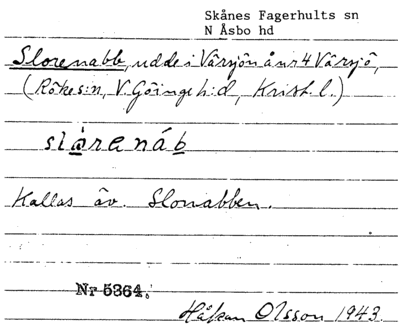 Skånes Fagerhults sn
N Åsbo hd
Slorenabb, udde i Vårsjön å nr 4 Vårsjö,
(Röke s:n, V. Göinge h:d, Krist. l.)
slɑ̀renáb
Kallas äv. Slonabben.
Nr 5364.
Håkan Olsson 1943.